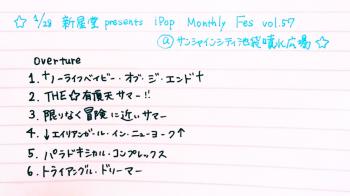 ☆ 1/28 新星堂 presents iPop Monthly Fes vol.57
@サンシャインシティ池袋噴水広場 ☆
overture
1. †ノーライフベイビー・オブ・ジ・エンド†
2. THE☆有頂天サマー!!
3. 限りなく冒険に近いサマー
4. ↓エイリアンガール・イン・ニューヨーク↑
5. パラドキシカル・コンプレックス
6. トライアングル・ドリーマー